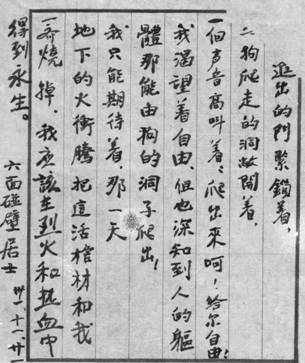 進出的門緊鎖着，
狗爬走的洞敞開着，
一個声音高叫着：爬出來呵！給尔自由！
我渴望着自由，但也深知到人的軀
體那能由狗的洞子爬出！
我只能期待着，那一天
地下的火衝騰把這活棺材和我
一齊燒掉，我应該在烈火和热血中
得到永生。
六面碰壁居士
卅一·十一·廿一